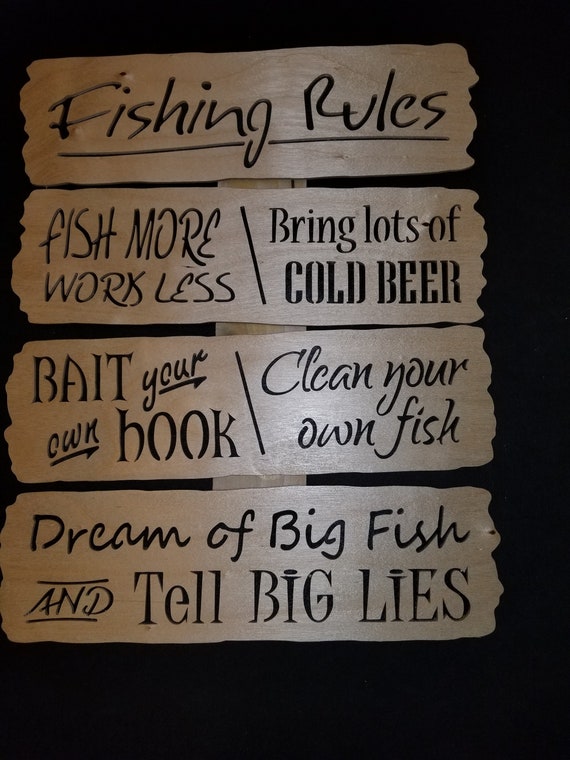 Fishing Rules
FISH MORE
WORK LESS
Bring lots of
COLD BEER
BAIT your
own hOOK
Clean your
own fish
Dream of Big Fish
AND Tell BiG LiES